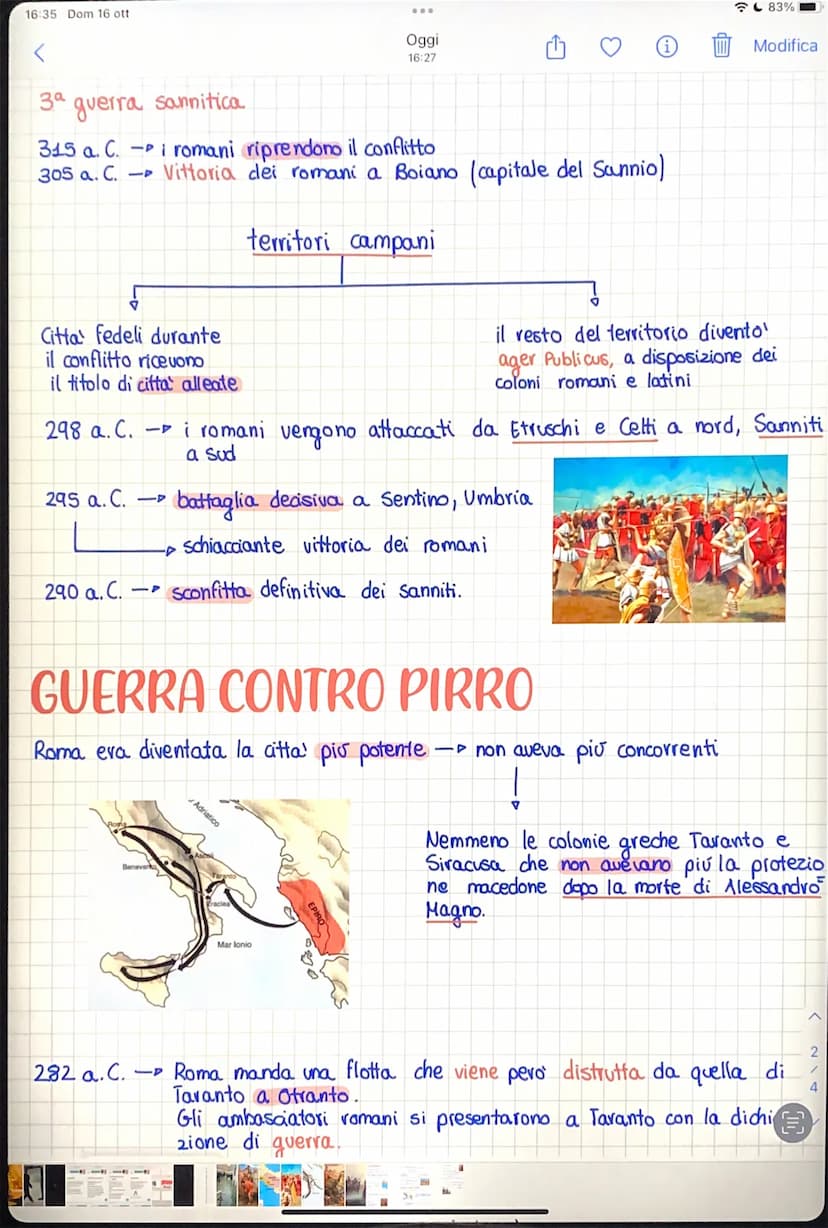 16:35 Dom 16 ott
83%
Oggi
16:27
Modifica
3ª guerra sannitica
315 a.C. → i romani riprendono il conflitto
305 a.C. → Vittoria dei romani a Boiano (capitale del Sannio)
territori campani
Citta' fedeli durante
il conflitto ricevono
il titolo di citta' alleate
il resto del territorio divento'
ager Publicus, a disposizione dei
coloni romani e latini
298 a.C. → i romani vengono attaccati da Etruschi e Celti a nord, Sanniti
a sud
295 a.C. → battaglia decisiva a Sentino, Umbria
schiacciante vittoria dei romani
290 a.C. → sconfitta definitiva dei sanniti.
GUERRA CONTRO PIRRO
Roma era diventata la citta' più potente → non aveva più concorrenti
Adriatico
Roma
Ascoli
Benevento
Taranto
Eraclea
EPIRO
Mar Ionio
Nemmeno le colonie greche Taranto e
Siracusa che non avevano più la protezio
ne macedone dopo la morte di Alessandro
Magno.
2
/
4
282 a.C. → Roma manda una flotta che viene pero' distrutta da quella di
Taranto a Otranto.
Gli ambasciatori romani si presentarono a Taranto con la dichi
zione di guerra.